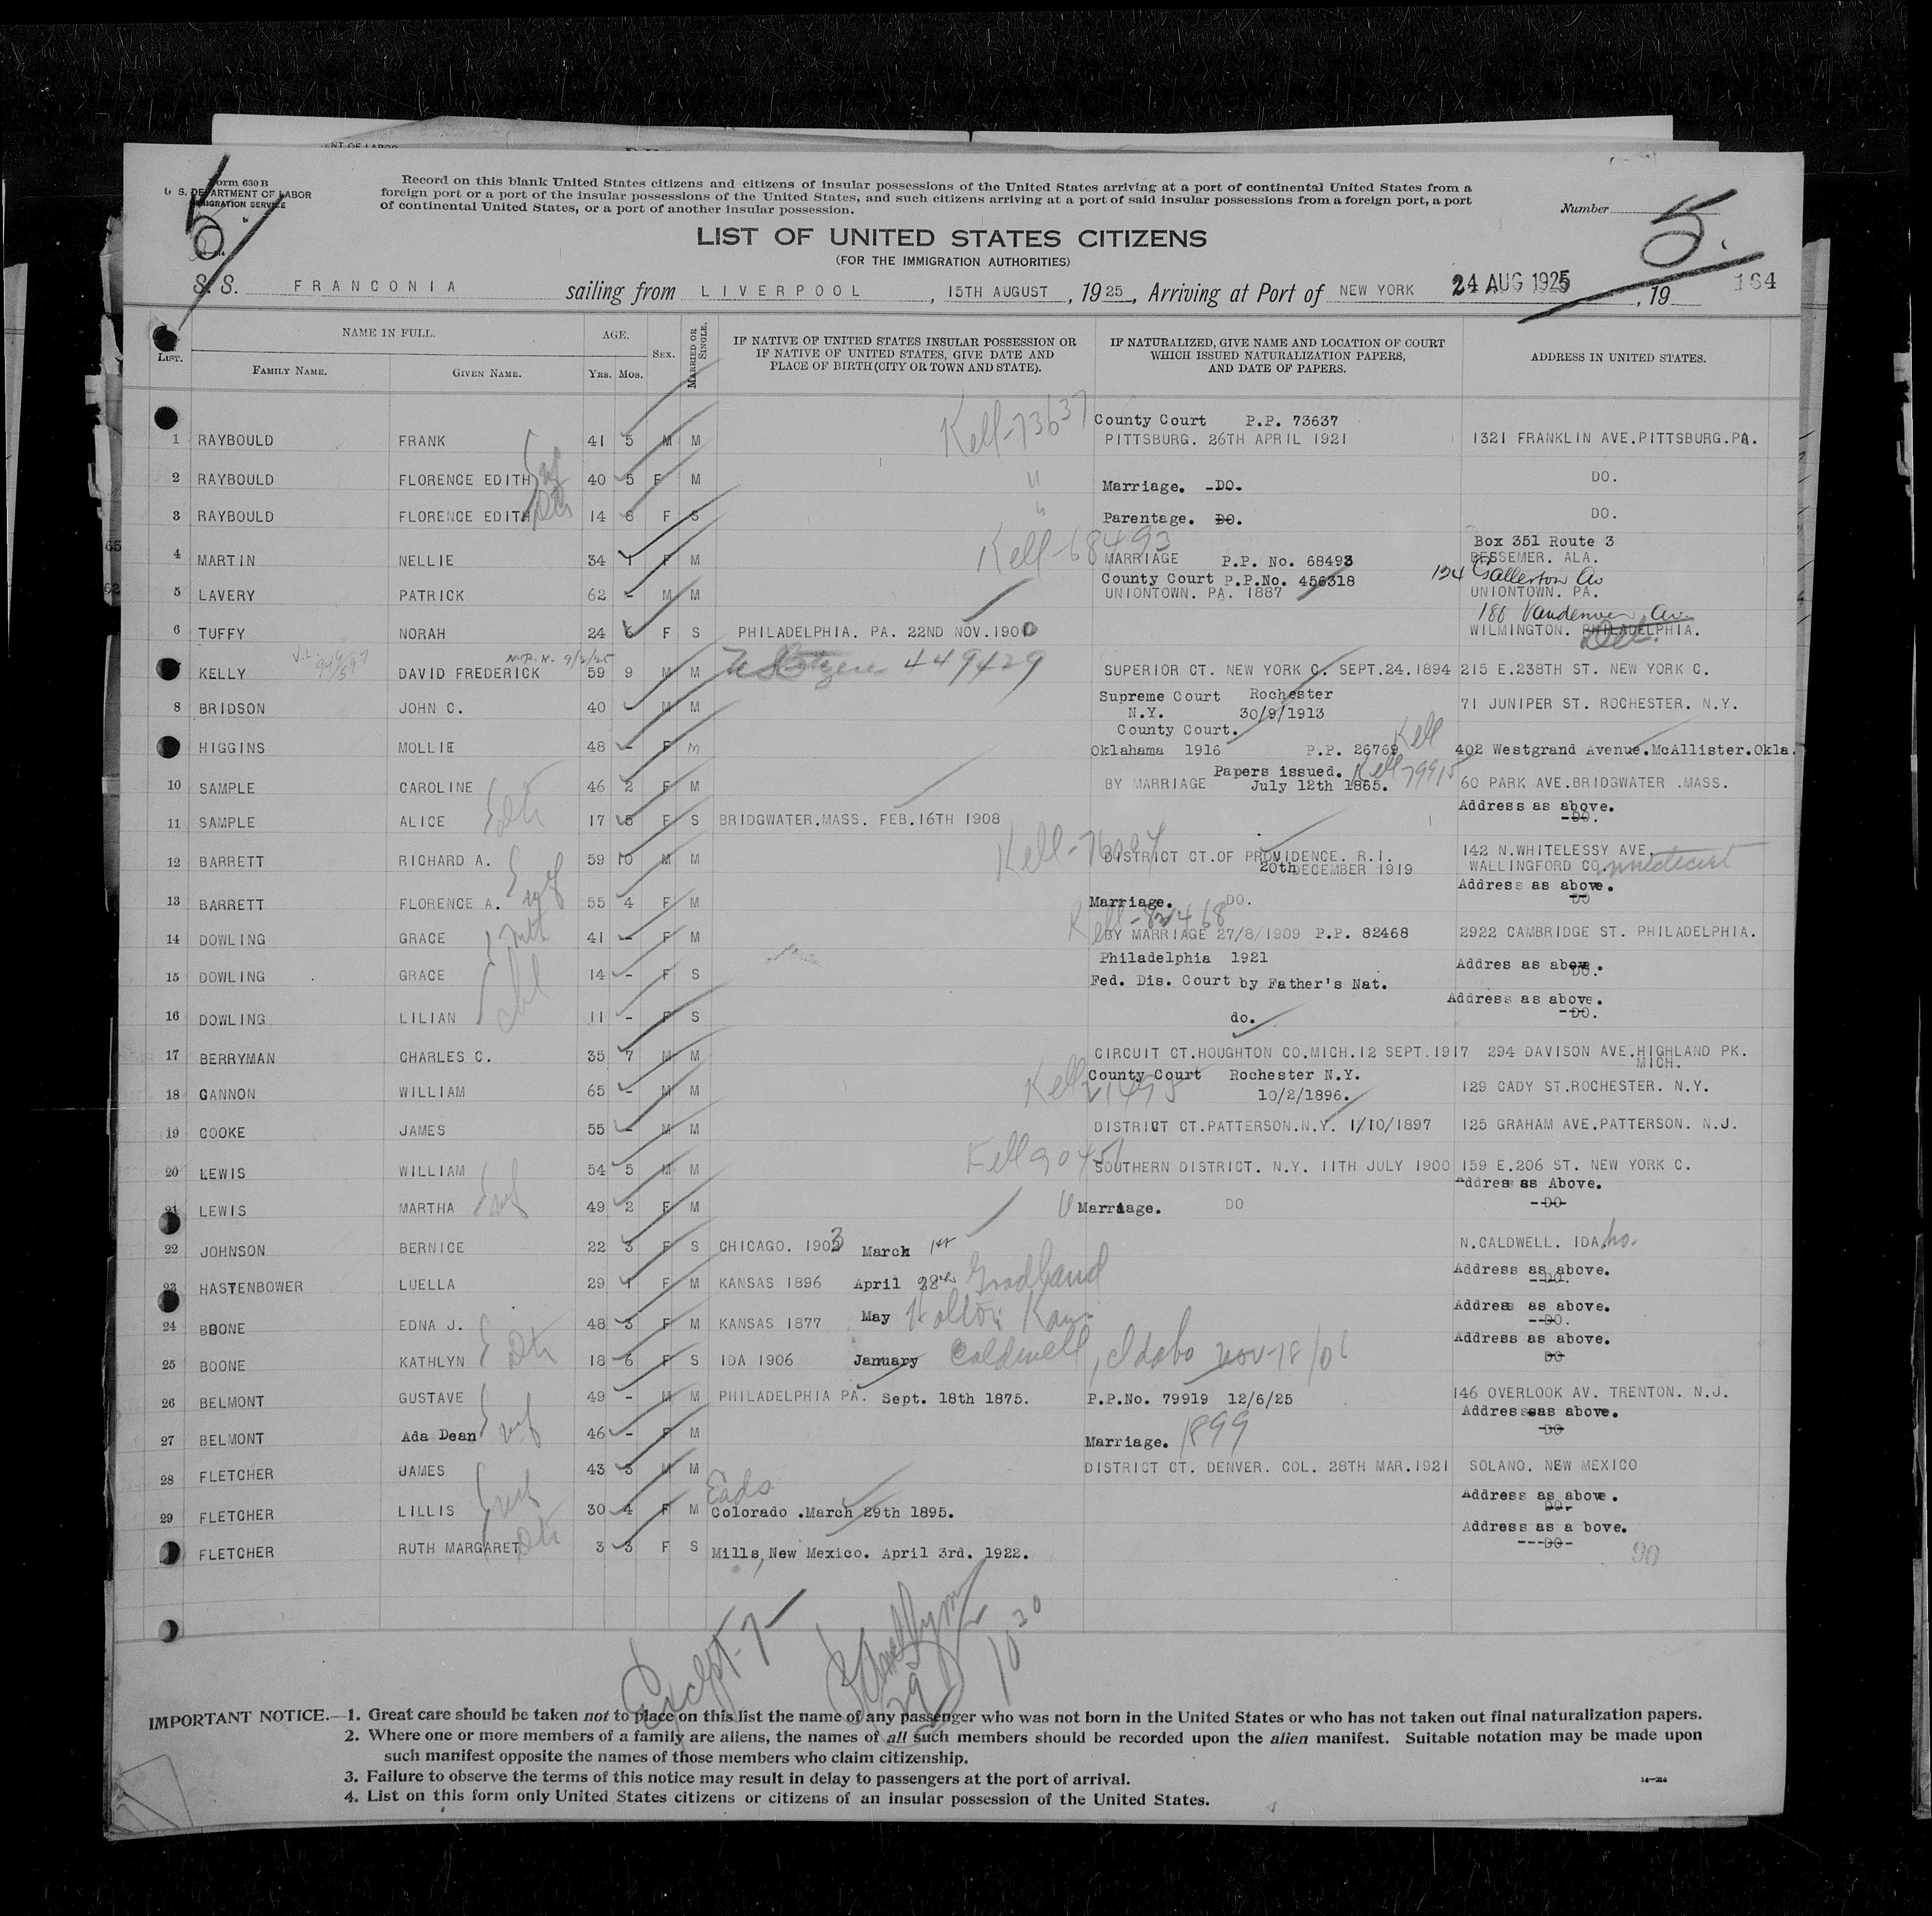 Form 630 B
U. S. DEPARTMENT OF LABOR
IMMIGRATION SERVICE
Record on this blank United States citizens and citizens of insular possessions of the United States arriving at a port of continental United States from a
foreign port or a port of the insular possessions of the United States, and such citizens arriving at a port of said insular possessions from a foreign port, a port
of continental United States, or a port of another insular possession.
Number
5
5
LIST OF UNITED STATES CITIZENS
(FOR THE IMMIGRATION AUTHORITIES)
S. S. FRANCONIA sailing from LIVERPOOL, 15TH AUGUST, 1925, Arriving at Port of NEW YORK 24 AUG 1925, 19 164
LIST. NAME IN FULL. AGE. SEX. MARRIED OR SINGLE. IF NATIVE OF UNITED STATES INSULAR POSSESSION OR IF NATIVE OF UNITED STATES, GIVE DATE AND PLACE OF BIRTH (CITY OR TOWN AND STATE). IF NATURALIZED, GIVE NAME AND LOCATION OF COURT WHICH ISSUED NATURALIZATION PAPERS, AND DATE OF PAPERS. ADDRESS IN UNITED STATES.
FAMILY NAME. GIVEN NAME. YRS. MOS.
Kell-73637 County Court P.P. 73637
1 RAYBOULD FRANK 41 5 M M PITTSBURG. 26TH APRIL 1921 1321 FRANKLIN AVE.PITTSBURG.PA.
2 RAYBOULD FLORENCE EDITH wf 40 5 F M " Marriage. -DO. DO.
3 RAYBOULD FLORENCE EDITH Dtr 14 6 F S " Parentage. DO. DO.
Kell-68493 Box 351 Route 3
4 MARTIN NELLIE 34 1 F M MARRIAGE P.P. No. 68493 BESSEMER. ALA.
County Court P.P.No. 456318 124 Gallerton Av
5 LAVERY PATRICK 62 - M M UNIONTOWN. PA. 1887 UNIONTOWN. PA.
186 Vandenver Av.
6 TUFFY NORAH 24 6 F S PHILADELPHIA. PA. 22ND NOV.1900 WILMINGTON. PHILADELPHIA. Del.
7 KELLY DAVID FREDERICK 9/2/25 59 9 M M US Citizen 449429 SUPERIOR CT. NEW YORK C. SEPT.24.1894 215 E.238TH ST. NEW YORK C.
Supreme Court Rochester
8 BRIDSON JOHN C. 40 - M M N.Y. 30/9/1913 71 JUNIPER ST. ROCHESTER. N.Y.
County Court.
HIGGINS MOLLIE 48 - F M Oklahoma 1916 P.P. 26769 Kell 402 Westgrand Avenue.McAllister.Okla.
Papers issued. Kell 79915
10 SAMPLE CAROLINE 46 2 F M BY MARRIAGE July 12th 1865. 60 PARK AVE.BRIDGWATER .MASS.
Address as above.
11 SAMPLE ALICE Dtr 17 5 F S BRIDGWATER.MASS. FEB.16TH 1908 -DO.
Kell-76004 142 N.WHITELESSY AVE.
12 BARRETT RICHARD A. 59 10 M M DISTRICT CT.OF PROVIDENCE. R.I. 20th DECEMBER 1919 WALLINGFORD CO.nnecticut
Address as above.
13 BARRETT FLORENCE A. wf 55 4 F M Marriage. DO. DO
Kell-82468
14 DOWLING GRACE mth 41 - F M BY MARRIAGE 27/8/1909 P.P. 82468 2922 CAMBRIDGE ST. PHILADELPHIA.
Philadelphia 1921 Addres as above.
15 DOWLING GRACE 14 - F S Fed. Dis. Court by Father's Nat. DO.
Address as above.
16 DOWLING LILIAN chl 11 - F S do. -DO.
17 BERRYMAN CHARLES C. 35 7 M M CIRCUIT CT.HOUGHTON CO.MICH.12 SEPT.1917 294 DAVISON AVE.HIGHLAND PK. MICH.
County Court Rochester N.Y.
18 GANNON WILLIAM 65 - M M 10/2/1896. 129 CADY ST.ROCHESTER. N.Y.
19 COOKE JAMES 55 - M M DISTRICT CT.PATTERSON.N.Y. 1/10/1897 125 GRAHAM AVE.PATTERSON. N.J.
20 LEWIS WILLIAM 54 5 M M SOUTHERN DISTRICT. N.Y. 11TH JULY 1900 159 E.206 ST. NEW YORK C.
Addres as Above.
21 LEWIS MARTHA wf 49 2 F M Marriage. DO --DO-
22 JOHNSON BERNICE 22 3 F S CHICAGO. 1903 March 1st N.CALDWELL. IDAho.
Address as above.
23 HASTENBOWER LUELLA 29 1 F M KANSAS 1896 April 28th Goodland --DO.
Addres as above.
24 BOONE EDNA J. 48 3 F M KANSAS 1877 May Holton Kan. --DO.
Address as above.
25 BOONE KATHLYN Dtr 18 6 F S IDA 1906 January Caldwell, Idaho Nov-18/06 DO
26 BELMONT GUSTAVE 49 - M M PHILADELPHIA PA. Sept. 18th 1875. P.P.No. 79919 12/6/25 146 OVERLOOK AV. TRENTON. N.J.
Address as above.
27 BELMONT Ada Dean wf 46 - F M Marriage. 1899 DO
28 FLETCHER JAMES 43 3 M M DISTRICT CT. DENVER. COL. 28TH MAR.1921 SOLANO. NEW MEXICO
Eads Address as above.
29 FLETCHER LILLIS wf 30 4 F M Colorado .March 29th 1895. DO.-
Address as a bove.
FLETCHER RUTH MARGARET Dtr 3 3 F S Mills, New Mexico. April 3rd. 1922. ---DO-
90
Except-7
29
10 30
IMPORTANT NOTICE.—1. Great care should be taken not to place on this list the name of any passenger who was not born in the United States or who has not taken out final naturalization papers.
2. Where one or more members of a family are aliens, the names of all such members should be recorded upon the alien manifest. Suitable notation may be made upon
such manifest opposite the names of those members who claim citizenship.
3. Failure to observe the terms of this notice may result in delay to passengers at the port of arrival.
4. List on this form only United States citizens or citizens of an insular possession of the United States.
14—214